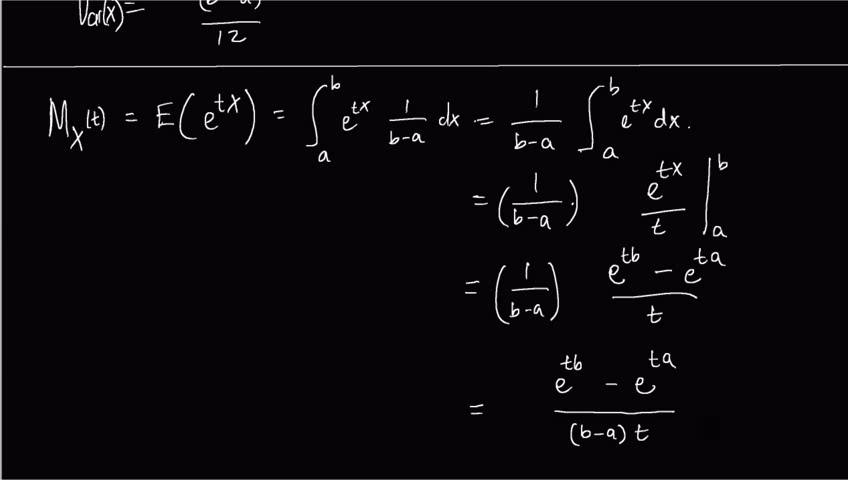 Var(x) = (b-a) / 12
M_X(t) = E(e^{tX}) = ∫_a^b e^{tx} 1/(b-a) dx = 1/(b-a) ∫_a^b e^{tx} dx.
= (1/(b-a)) · e^{tx}/t |_a^b
= (1/(b-a)) (e^{tb} - e^{ta})/t
= (e^{tb} - e^{ta}) / ((b-a) t)